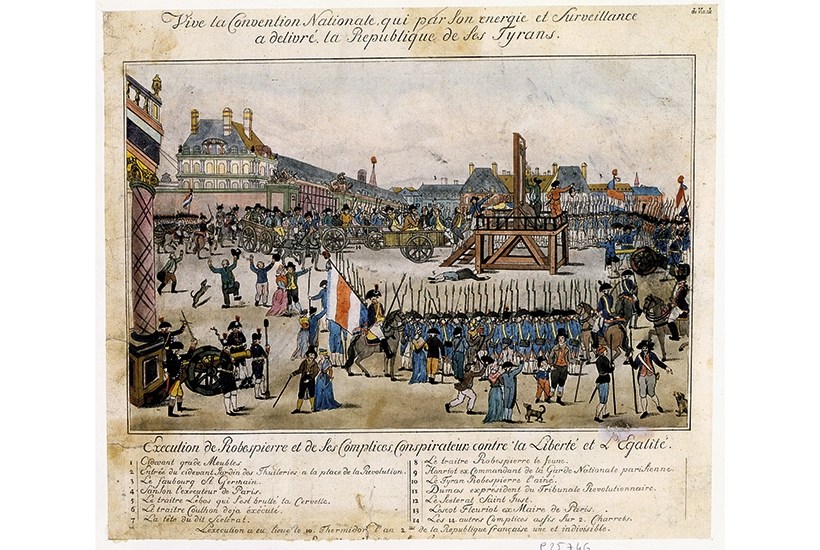 Vive la Convention Nationale, qui par son energie et Surveillance
a delivré la Republique de ses Tyrans.
Execution de Robespierre et de ses Complices, Conspirateurs contre la Liberté et L'Egalité.
1 Cidevant garde Meubles
2 Entrée du cidevant Jardin des Thuileries a la place de la Révolution.
3 Le faubourg St Germain.
4 Sanson l'executeur de Paris.
5 Le traitre Lébas qui s'est brullé la Cervelle.
6 Le traitre Couthon deja éxécuté.
7 La tête du dit Scélerat.
8 Le traitre Robespierre le Jeune.
9 Hanriot ex Commandant de la Garde Nationale parisienne.
10 Le Tyran Robespierre l'ainé.
12 Dumas expresident du Tribunale Revolutionnaire.
Le Scelerat Saint Just.
Lescot Fleuriot ex Maire de Paris.
14 Les autres Complices assis sur 2. Charrets.
L'éxécution a eu lieu le 10. Thermidor l'an 2 de la République françoise une et indivisible.
P.25746